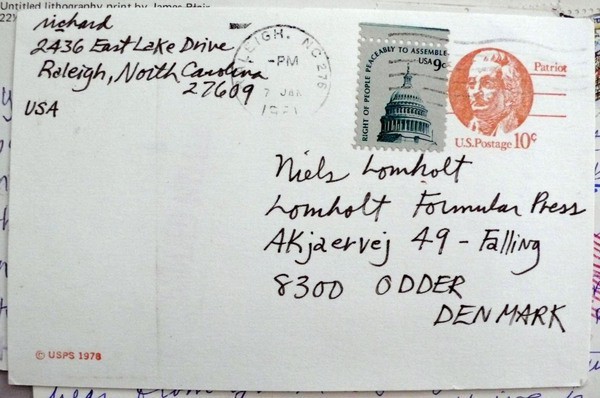 Untitled lithography print by James Blair
richard
2436 East Lake Drive
Raleigh, North Carolina
27609
USA
LEIGH, NC 276
-PM
7 JAN
RIGHT OF PEOPLE PEACEABLY TO ASSEMBLE
USA 9c
Patriot
U.S. Postage 10¢
Niels Lomholt
Lomholt Formular Press
AKjaervej 49 - Falling
8300 ODDER
DENMARK
© USPS 1978